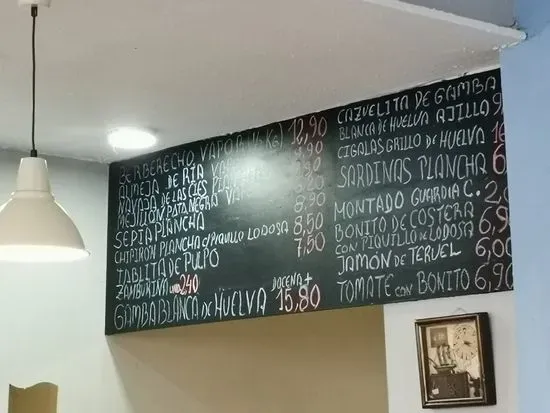 BERBERECHO VAPOR (¼ KG) 12,90
ALMEJA DE RIA
NAVAJA DE LAS CIES PLANCHA
MEJILLON PATA NEGRA VAPOR
SEPIA PLANCHA
CHIPIRÓN PLANCHA PIQUILLO LODOSA 8,50
TABLITA DE PULPO 7,50
ZAMBURIÑA UND 2,40
GAMBA BLANCA DE HUELVA DOCENA + 15,80
CAZUELITA DE GAMBA
BLANCA DE HUELVA AJILLO
CIGALAS GRILLO DE HUELVA
SARDINAS PLANCHA
MONTADO GUARDIA C.
BONITO DE COSTERA 6,90
CON PIQUILLO DE LODOSA
JAMÓN DE TERUEL 6,00
TOMATE CON BONITO 6,90